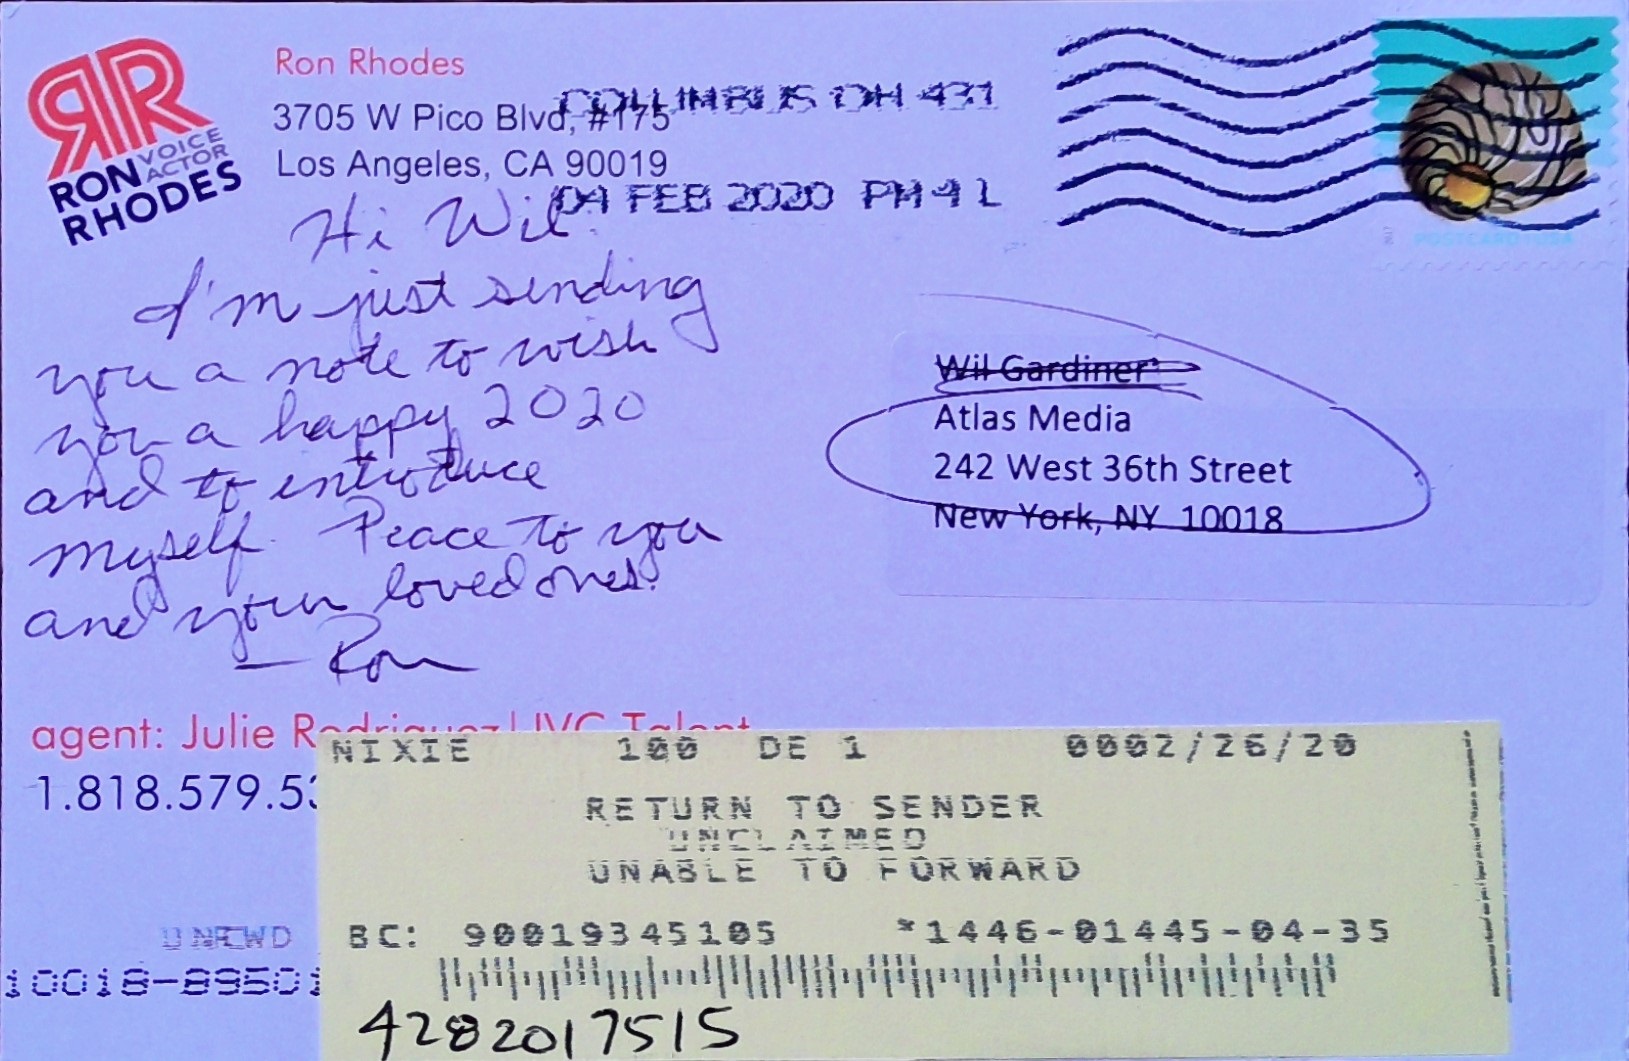 RR
RON VOICE ACTOR
RHODES
Ron Rhodes
3705 W Pico Blvd, #175
Los Angeles, CA 90019
COLUMBUS OH 431
04 FEB 2020 PM 4 L
POSTCARD USA
Hi Wil!
I'm just sending
you a note to wish
you a happy 2020
and to introduce
myself. Peace to you
and your loved ones!
— Ron
Wil Gardiner
Atlas Media
242 West 36th Street
New York, NY 10018
agent: Julie Rodriguez | JVC Talent
1.818.579.53
NIXIE 100 DE 1 0002/26/20
RETURN TO SENDER
UNCLAIMED
UNABLE TO FORWARD
UNFWD
BC: 90019345105 *1446-01445-04-35
10018-89501
4282017515